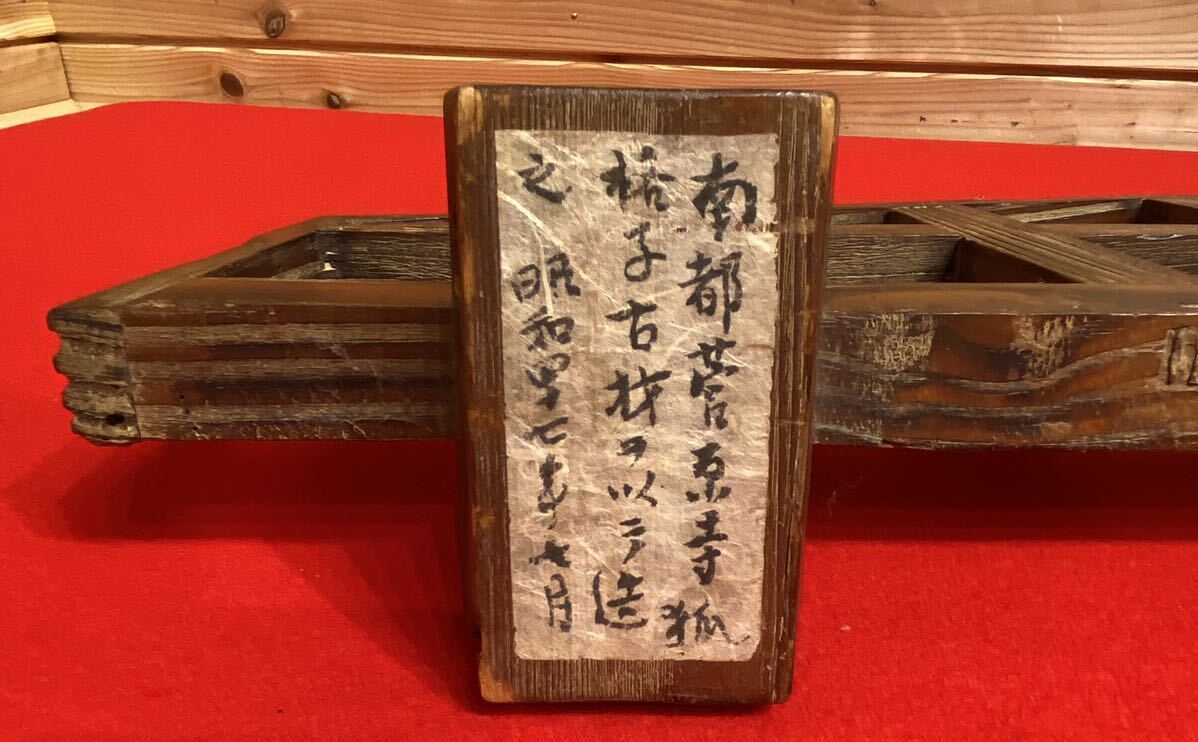 南都菅原寺狐
格子古材ヲ以テ造
之 昭和四十七年七月